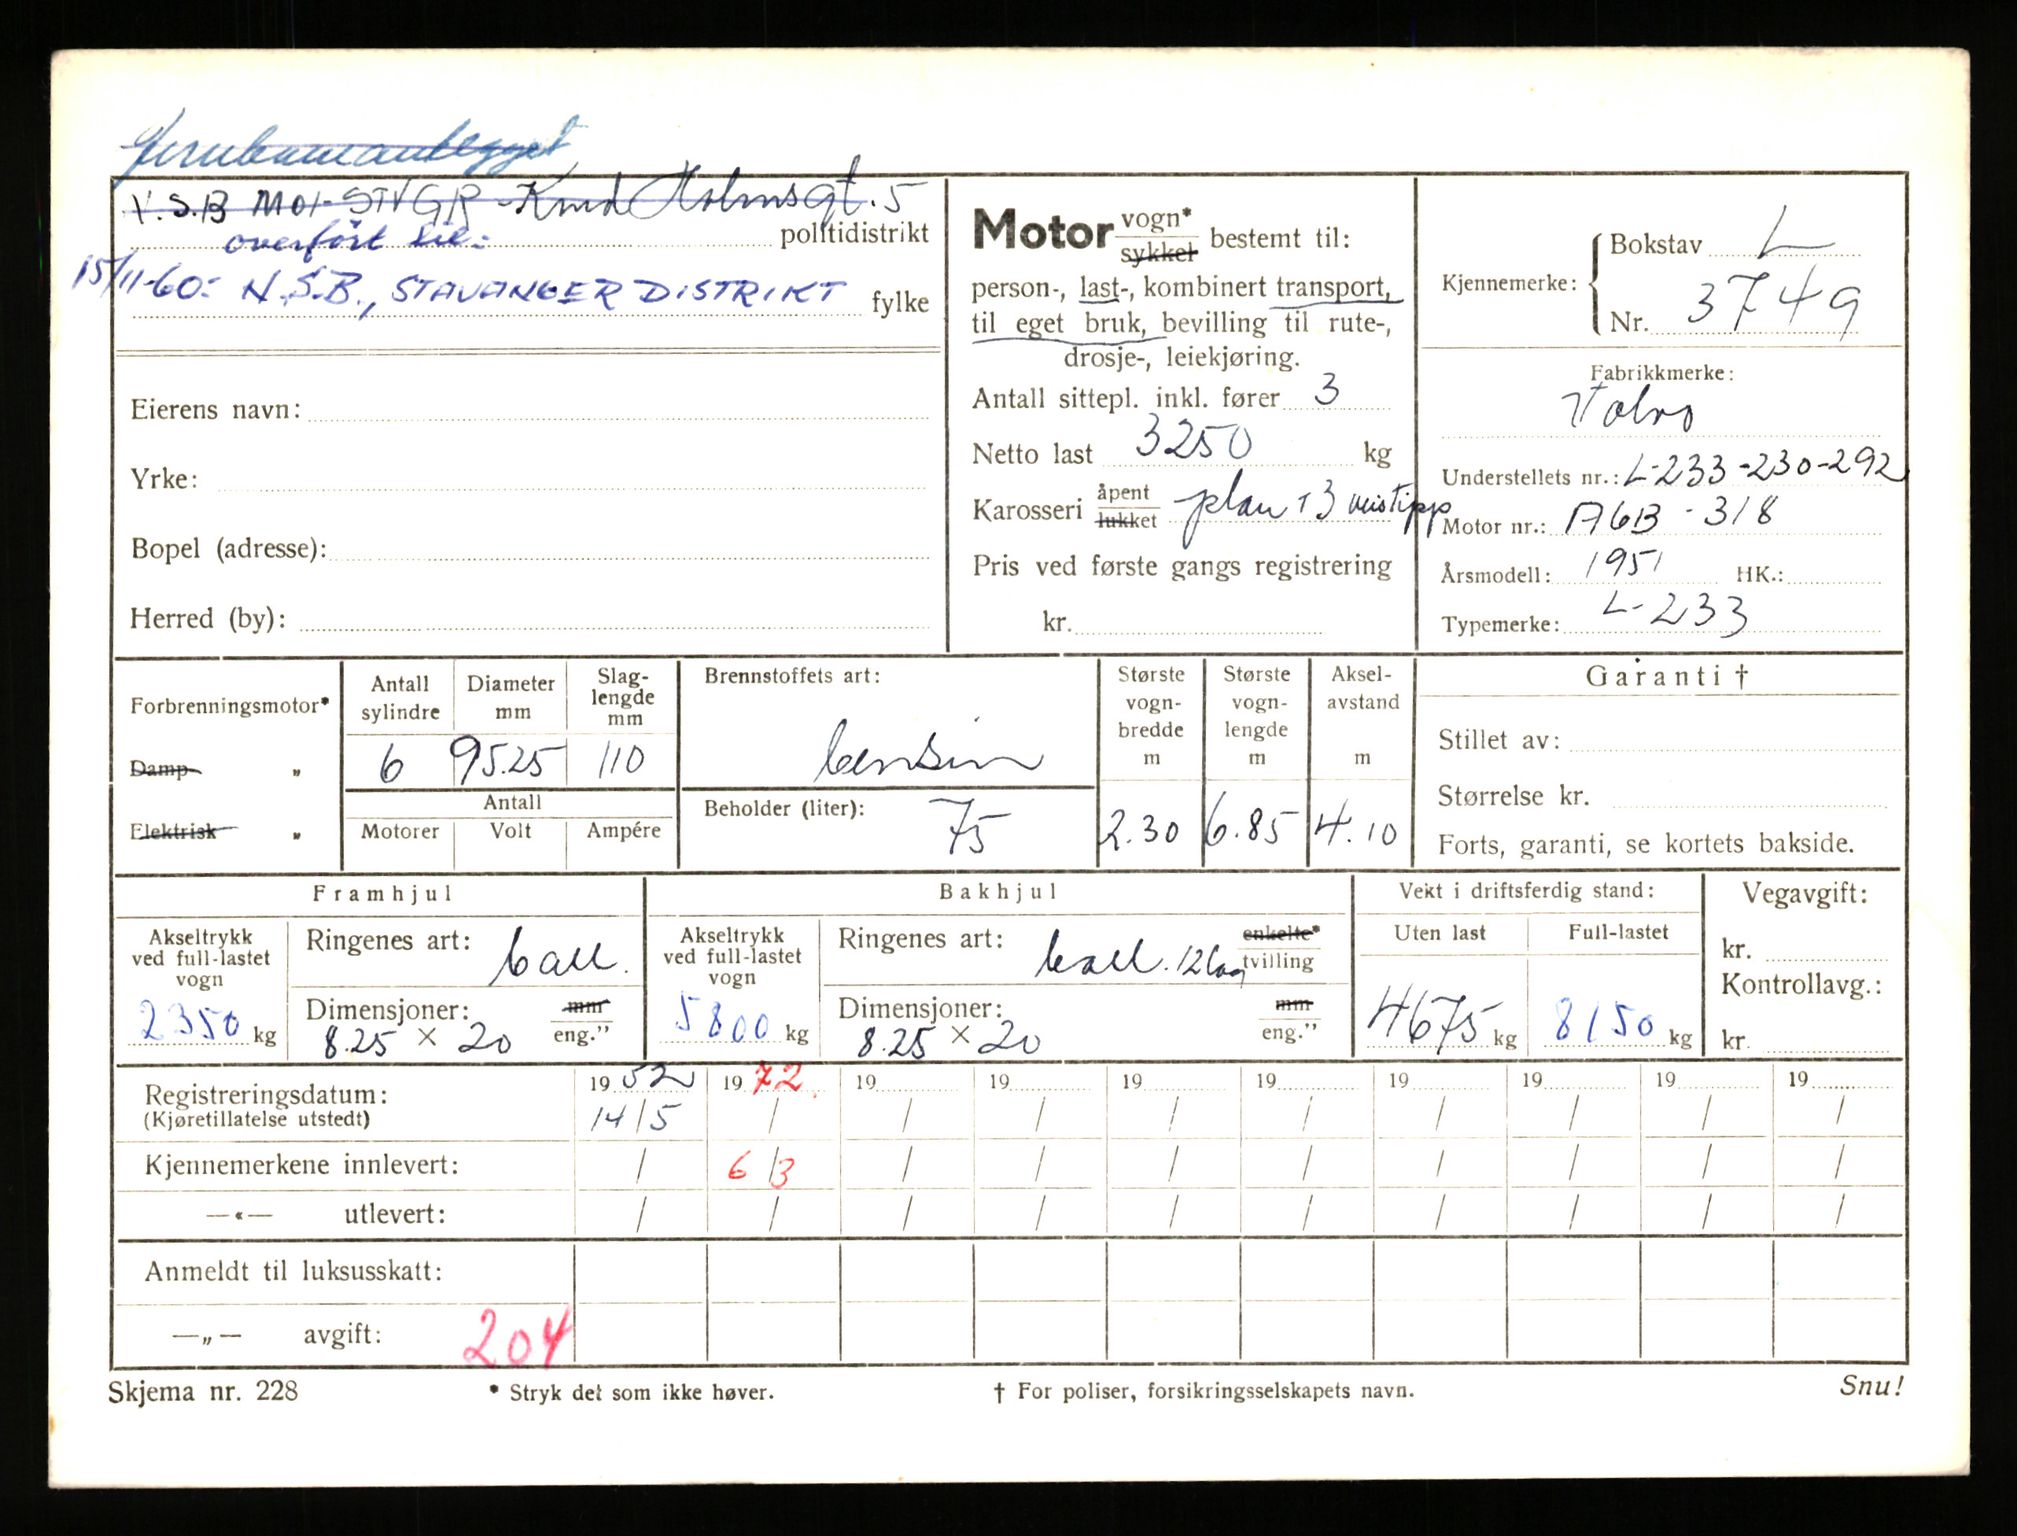 Jernbaneanlegget
N.S.B MOI-STVGR Knud Holmsgt. 5
overført til: politidistrikt
15/11-60: N.S.B., STAVANGER DISTRIKT fylke
Eierens navn:
Yrke:
Bopel (adresse):
Herred (by):
Motor vogn* sykkel bestemt til:
person-, last-, kombinert transport,
til eget bruk, bevilling til rute-,
drosje-, leiekjøring.
Antall sittepl. inkl. fører 3
Netto last 3250 kg
Karosseri åpent lukket plan + 3 veistipp
Pris ved første gangs registrering
kr.
Kjennemerke: Bokstav L
Nr. 3749
Fabrikkmerke:
Volvo
Understellets nr.: L-233-230-292
Motor nr.: A6B - 318
Årsmodell: 1951 HK.:
Typemerke: L-233
Forbrenningsmotor*
Damp- "
Elektrisk "
Antall sylindre
6
Diameter mm
95.25
Slag-lengde mm
110
Antall
Motorer Volt Ampére
Brennstoffets art:
bensin
Beholder (liter):
75
Største vogn-bredde m
2.30
Største vogn-lengde m
6.85
Aksel-avstand m
4.10
Garanti †
Stillet av:
Størrelse kr.
Forts, garanti, se kortets bakside.
Framhjul
Akseltrykk ved full-lastet vogn
2350 kg
Ringenes art: ball.
Dimensjoner: mm
8.25 × 20 eng."
Bakhjul
Akseltrykk ved full-lastet vogn
5800 kg
Ringenes art: ball. 12 lag enkelte* tvilling
Dimensjoner: mm
8.25 × 20 eng."
Vekt i driftsferdig stand:
Uten last Full-lastet
4675 kg 8150 kg
Vegavgift:
kr.
Kontrollavg.:
kr.
Registreringsdatum: 1952 1972 19 19 19 19 19 19 19 19
(Kjøretillatelse utstedt) 14/5 / / / / / / / / /
Kjennemerkene innlevert: / 6/3 / / / / / / / /
—«— utlevert: / / / / / / / / / /
Anmeldt til luksusskatt:
—„— avgift: 204
Skjema nr. 228 * Stryk det som ikke høver. † For poliser, forsikringsselskapets navn. Snu!